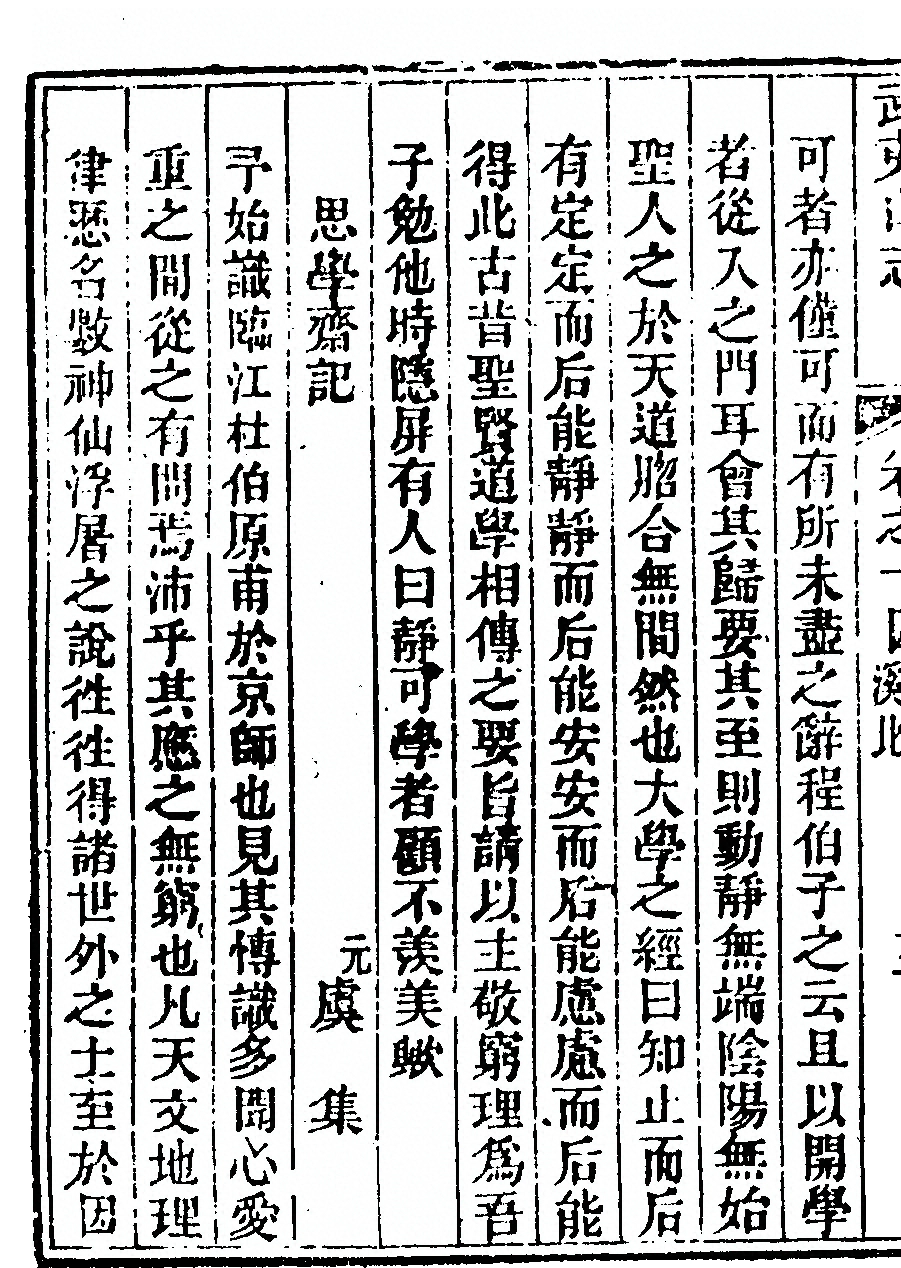 武夷山志 卷之十四溪北
可者亦僅可而有所未盡之辭程伯子之云且以開學
者從入之門耳會其歸要其至則動靜無端陰陽無始
聖人之於天道脗合無間然也大學之經曰知止而后
有定定而后能靜靜而后能安安而后能慮慮而后能
得此古昔聖賢道學相傳之要旨請以主敬窮理爲吾
子勉他時隱屏有人曰靜可學者顧不羨美歟
思學齋記 元虞集
予始識臨江杜伯原甫於京師也見其慱識多聞心愛
重之間從之有問焉沛乎其應之無窮也凡天文地理
律厯名數神仙浮屠之說徃徃得諸世外之士至於因